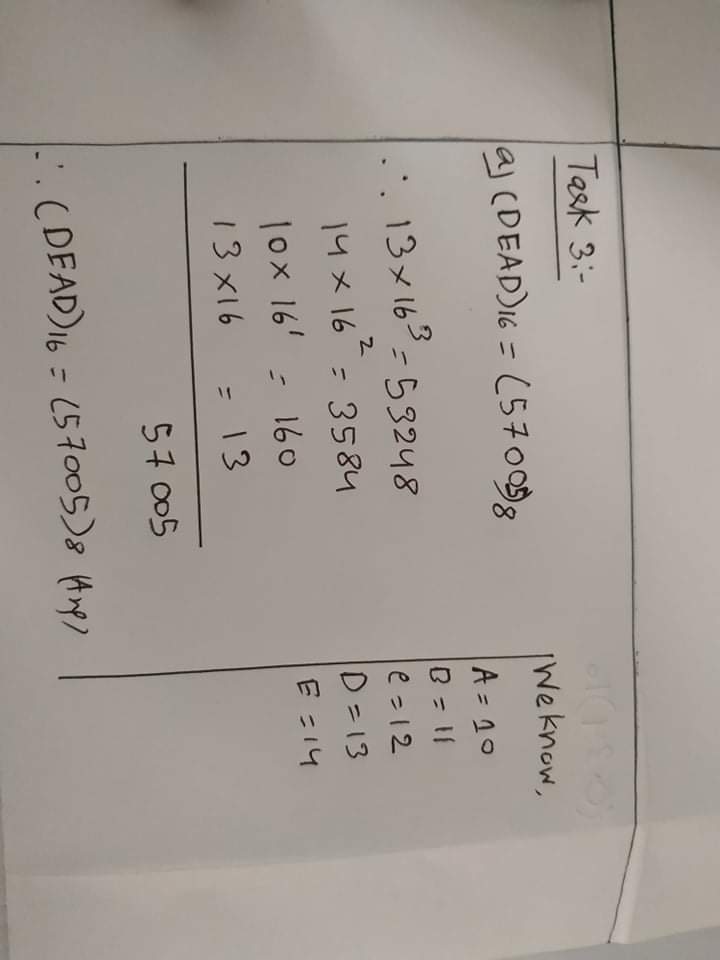 Task 3:-
a) (DEAD)₁₆ = (57005)₈
∴ 13 × 16³ = 53248
14 × 16² = 3584
10 × 16¹ = 160
13 × 16 = 13
57005
∴ (DEAD)₁₆ = (57005)₈ (Ans)
We know,
A = 10
B = 11
C = 12
D = 13
E = 14